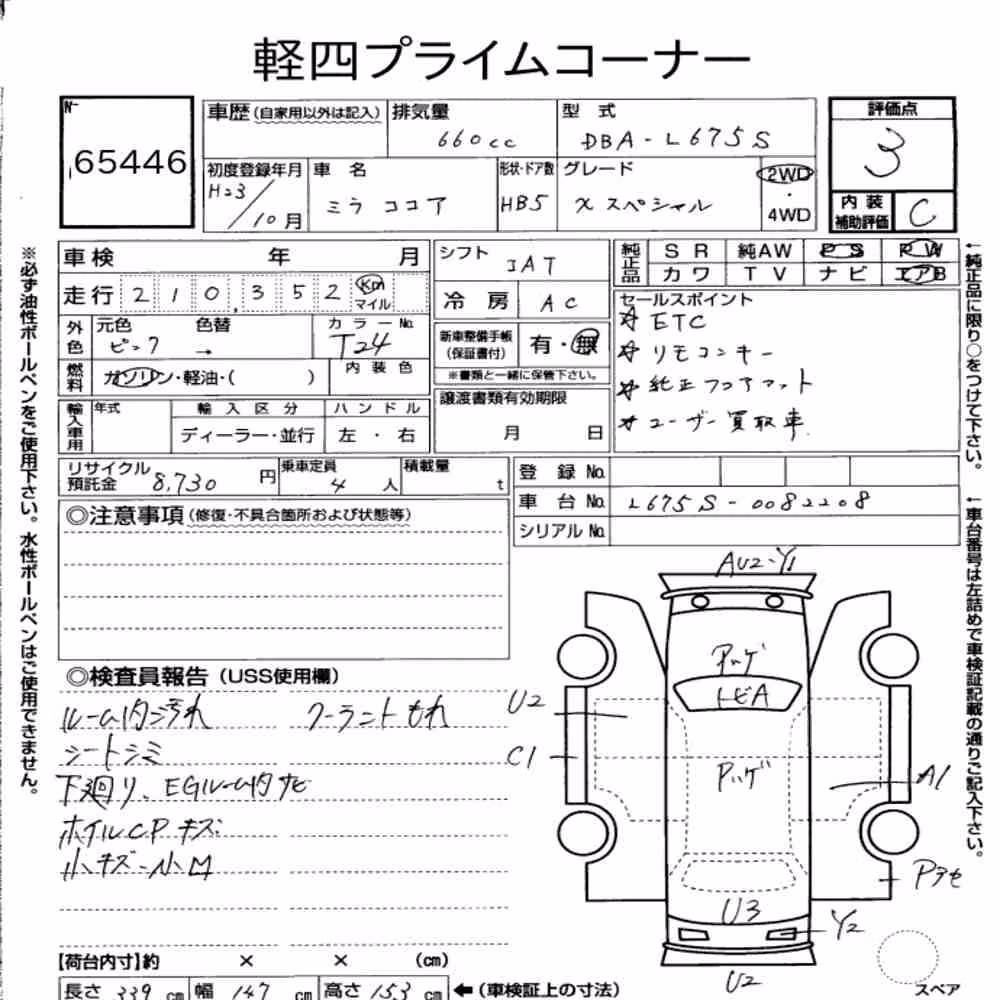 軽四プライムコーナー
No 65446
車歴(自家用以外は記入) 排気量 660cc 型式 DBA-L675S
評価点 3
初度登録年月 H23/10月 車名 ミラ ココア 形状・ドア数 HB5 グレード X スペシャル 2WD・4WD
内装補助評価 C
車検 年 月 シフト IAT 純正品 SR 純AW PS PW
カワ TV ナビ エアB
走行 210,352 Km マイル 冷房 AC
セールスポイント
☆ ETC
☆ リモコンキー
☆ 純正フロアマット
☆ ユーザー買取車
外色 元色 ピンク 色替 → カラーNo. T24
新車整備手帳(保証書付) 有・無
※書類と一緒に保管下さい。
燃料 ガソリン・軽油・( ) 内装色
輸入車用 年式 輸入区分 ディーラー・並行 ハンドル 左・右
譲渡書類有効期限 月 日
リサイクル預託金 8,730円 乗車定員 4人 積載量 t
登録No.
車台No. L675S-0082208
シリアルNo.
◎注意事項(修復・不具合箇所および状態等)
◎検査員報告(USS使用欄)
ルーム内汚れ クーラントもれ
シートシミ
下廻り、EGルーム内サビ
ホイルCPキズ
小キズ-小凹
AU2-Y1
アッゲ
トビA
U2
C1
Pハゲ
A1
Pアセ
U3
Y2
U2
スペア
【荷台内寸】約 × × (cm)
長さ 339 cm 幅 147 cm 高さ 153 cm ←(車検証上の寸法)
※必ず油性ボールペンをご使用下さい。水性ボールペンはご使用できません。
←純正品に限り○をつけて下さい。
←車台番号は左詰めで車検証記載の通りご記入下さい。